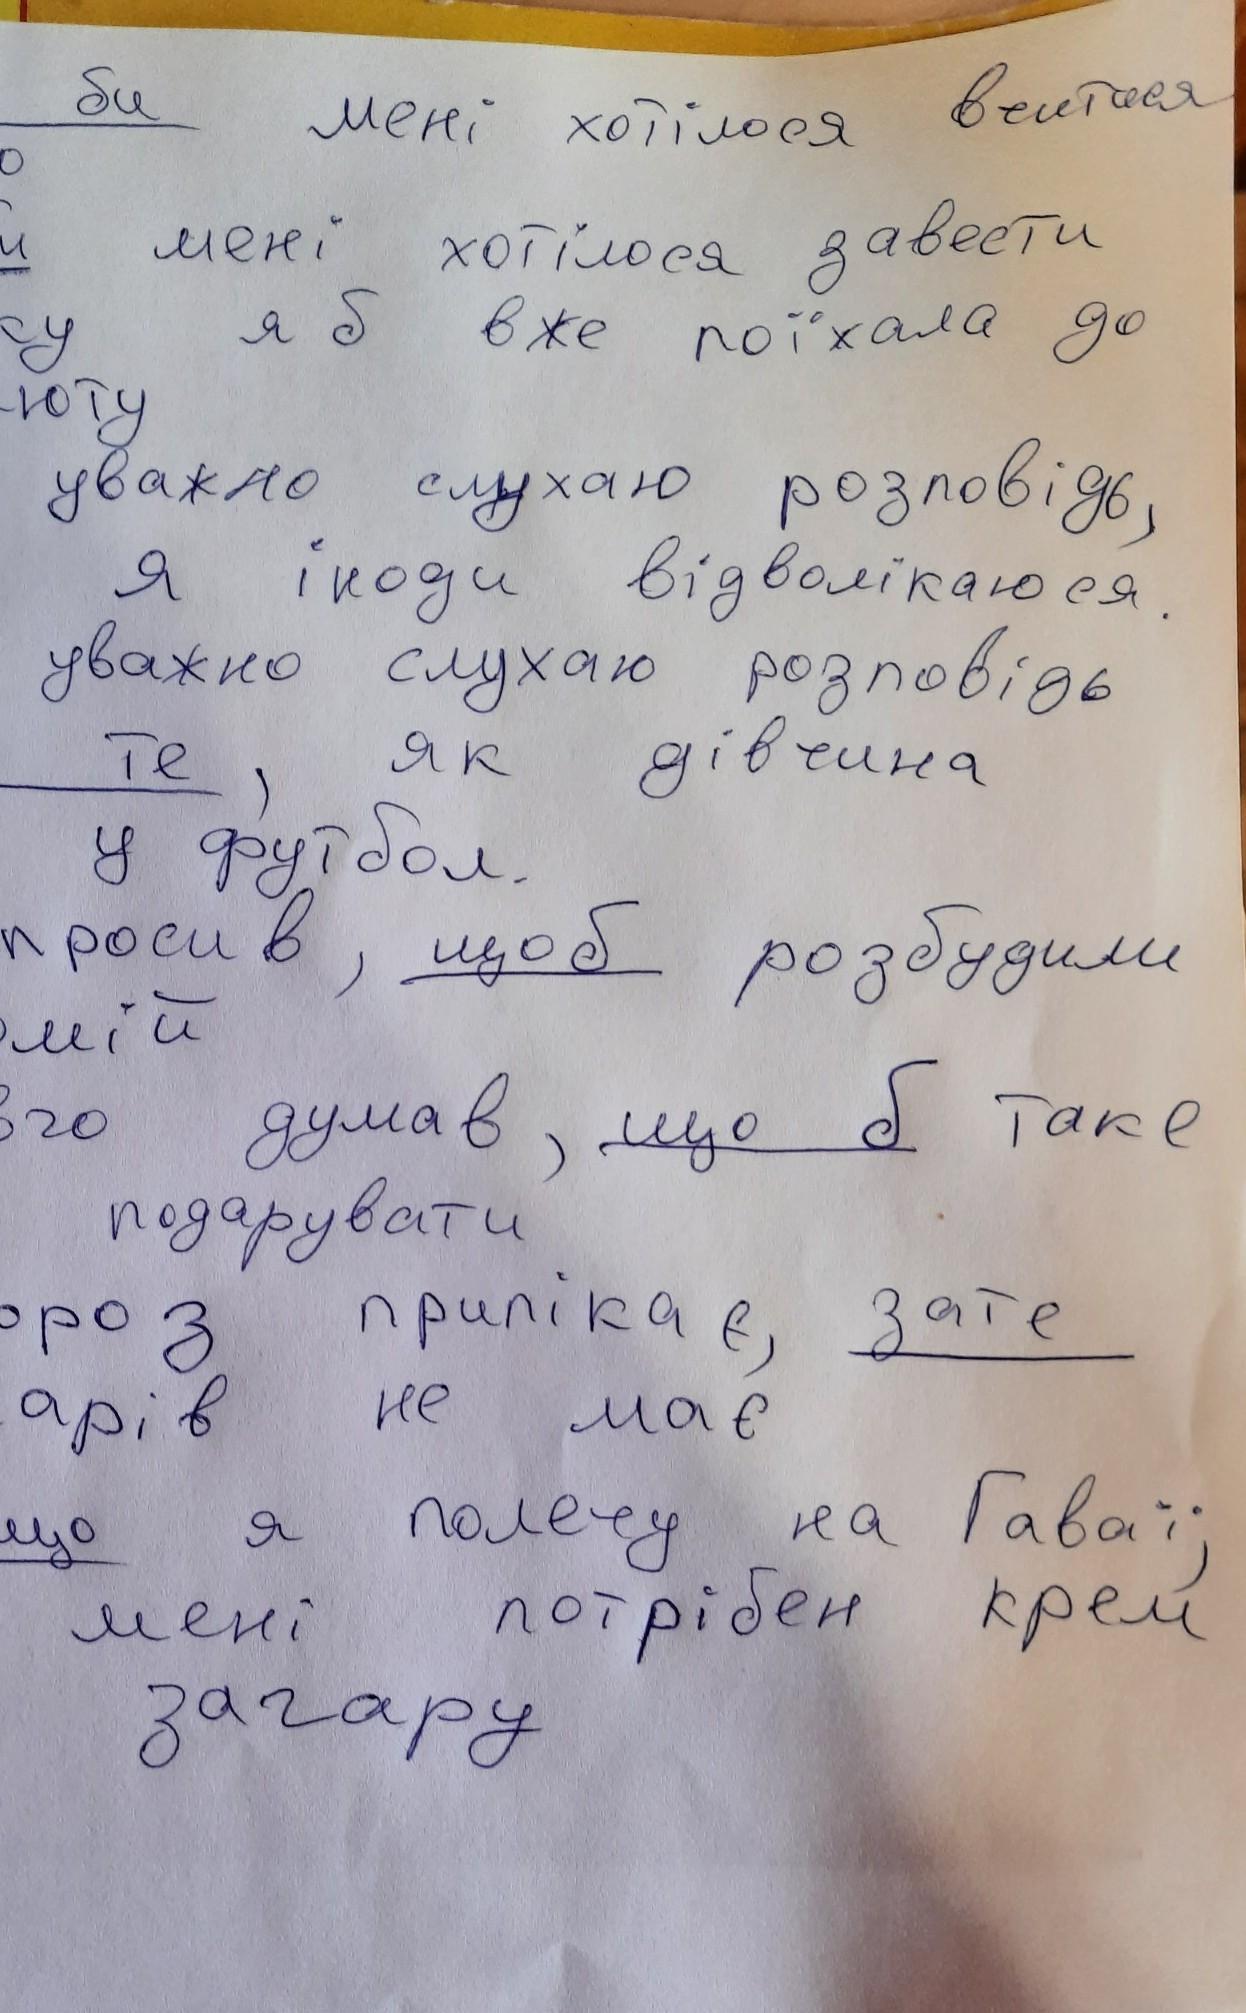 би мені хотілося вчитися
о
и мені хотілося завести
су я б вже поїхала до
люту
уважно слухаю розповідь,
я іноди відволікаюся.
уважно слухаю розповідь
те, як дівчина
у футбол.
просив, щоб розбудили
омій
вго думав, що б таке
подарувати
ороз припікає, зате
арів не має
що я полечу на Гаваїї,
мені потрібен крем
загару